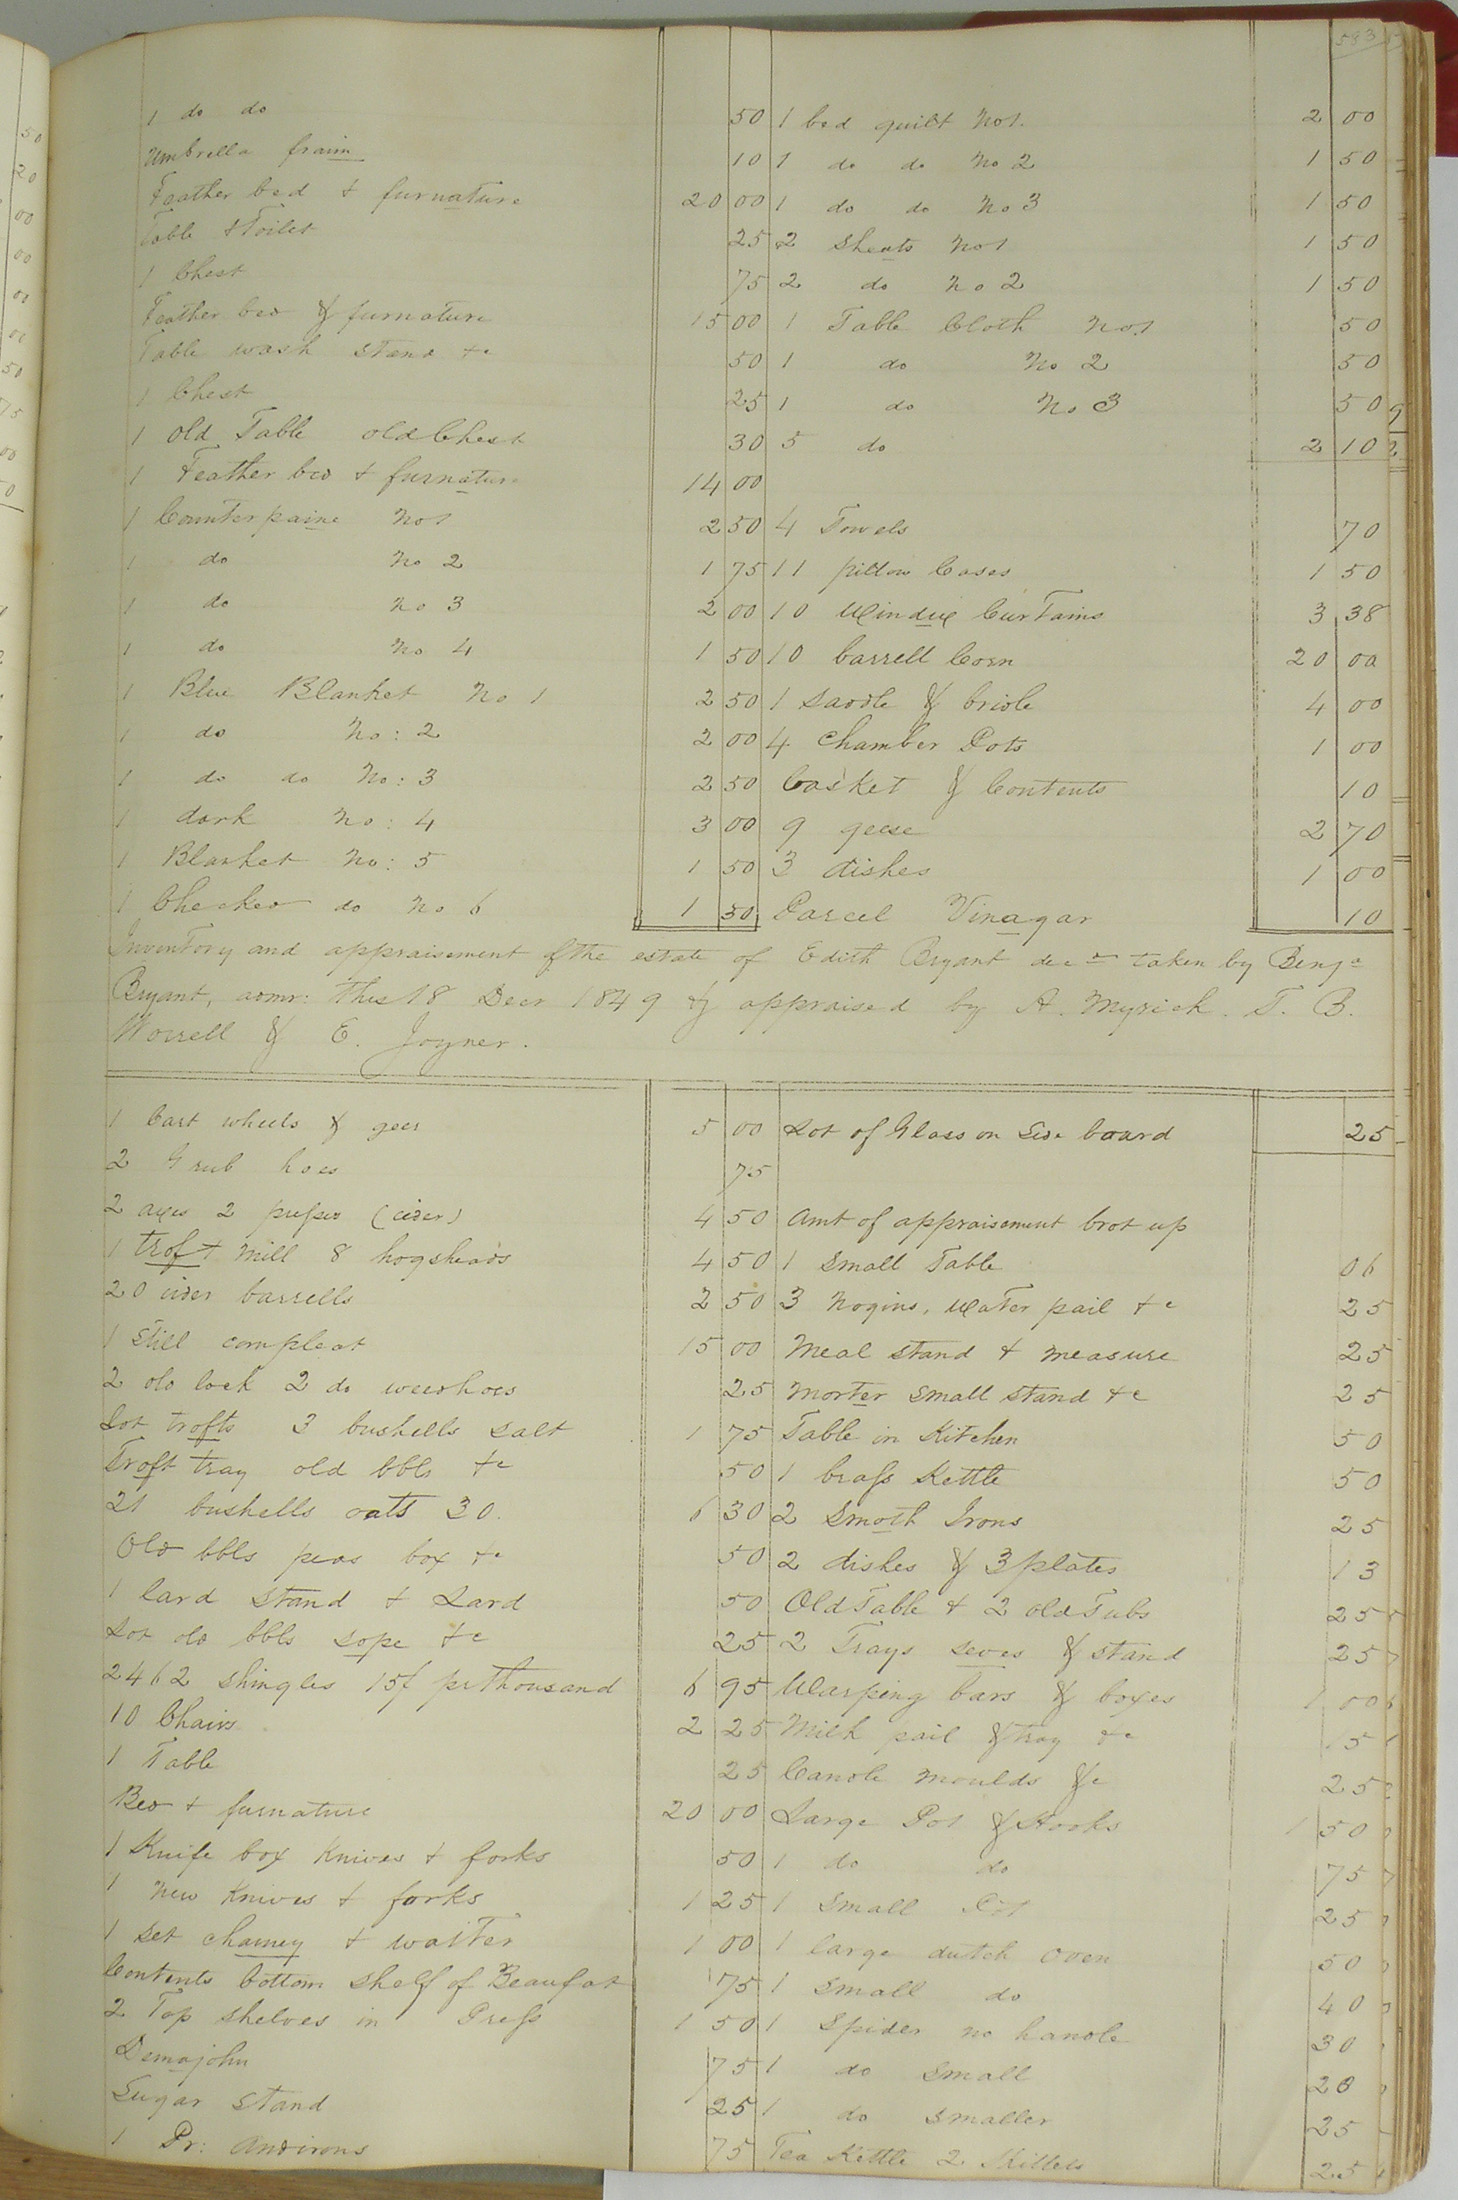 583
1 do do 50 1 bed quilt No1. 2 00
Umbrella fraim 10 1 do do No 2 1 50
Feather bed & furnature 20 00 1 do do No 3 1 50
Table & Toilet 25 2 Sheats No1 1 50
1 Chest 75 2 do No 2 1 50
Feather bed & furnature 15 00 1 Table Cloth No1 50
Table wash stand &c 50 1 do No 2 50
1 Chest 25 1 do No 3 50
1 Old Table old Chest 30 5 do 2 10
1 Feather bed & furnature 14 00
1 Counterpaine No1 2 50 4 Towels 70
1 do No 2 1 75 11 pillow Cases 1 50
1 do No 3 2 00 10 Windue Curtains 3 38
1 do No 4 1 50 10 barrell Corn 20 00
1 Blue Blanket No 1 2 50 1 saddle & bridle 4 00
1 do No: 2 2 00 4 Chamber Pots 1 00
1 do do No: 3 2 50 Casket & Contents 10
1 dark No: 4 3 00 9 geese 2 70
1 Blanket No: 5 1 50 3 dishes 1 00
1 Checked do No 6 1 50 Parcel Vinagar 10
Inventory and appraisement of the estate of Edith Bryant decd taken by Benja
Bryant, admr: this 18 Decr 1849 & appraised by A. Myrick. T. B.
Worrell & E. Joyner.
1 Cart wheels & geer 5 00 Lot of Glass on Side board 25
2 Grub hoes 75
2 axes 2 presses (cider) 4 50 Amt of appraisement brot up
1 troft Mill 8 hogsheads 4 50 1 Small Table 06
20 cider barrells 2 50 3 Nogins, water pail &c 25
1 Still compleat 15 00 Meal stand & measure 25
2 old lock 2 do weedhoes 25 Morter small stand &c 25
Lot trofts 3 bushells salt 1 75 Table in Kitchen 50
Troft tray old bbls &c 50 1 brass Kettle 50
21 bushells oats 30. 6 30 2 Smoth Irons 25
Old bbls peas box &c 50 2 dishes & 3 plates 13
1 lard stand & Lard 50 Old Table & 2 old Tubs 25
Lot old bbls sope &c 25 2 Trays seves & stand 25
2462 shingles 15/ pr thousand 6 95 Warping bars & boxes 1 00
10 Chairs 2 25 Milk pail & tray &c 15
1 Table 25 Candle moulds &c 25
Bed & furnature 20 00 Large Pot & Hooks 1 50
1 Knife box Knives & forks 50 1 do do 75
1 New Knives & forks 1 25 1 Small Pot 25
1 set chainey & waiter 1 00 1 large dutch oven 50
Contents bottom Shelf of Beaufat 75 1 Small do 40
2 Top shelves in Press 1 50 1 Spider no handle 30
Demajohn 75 1 do Small 20
Sugar Stand 25 1 do smaller 25
1 Pr: Andirons 75 Tea Kettle 2 Skillets 25